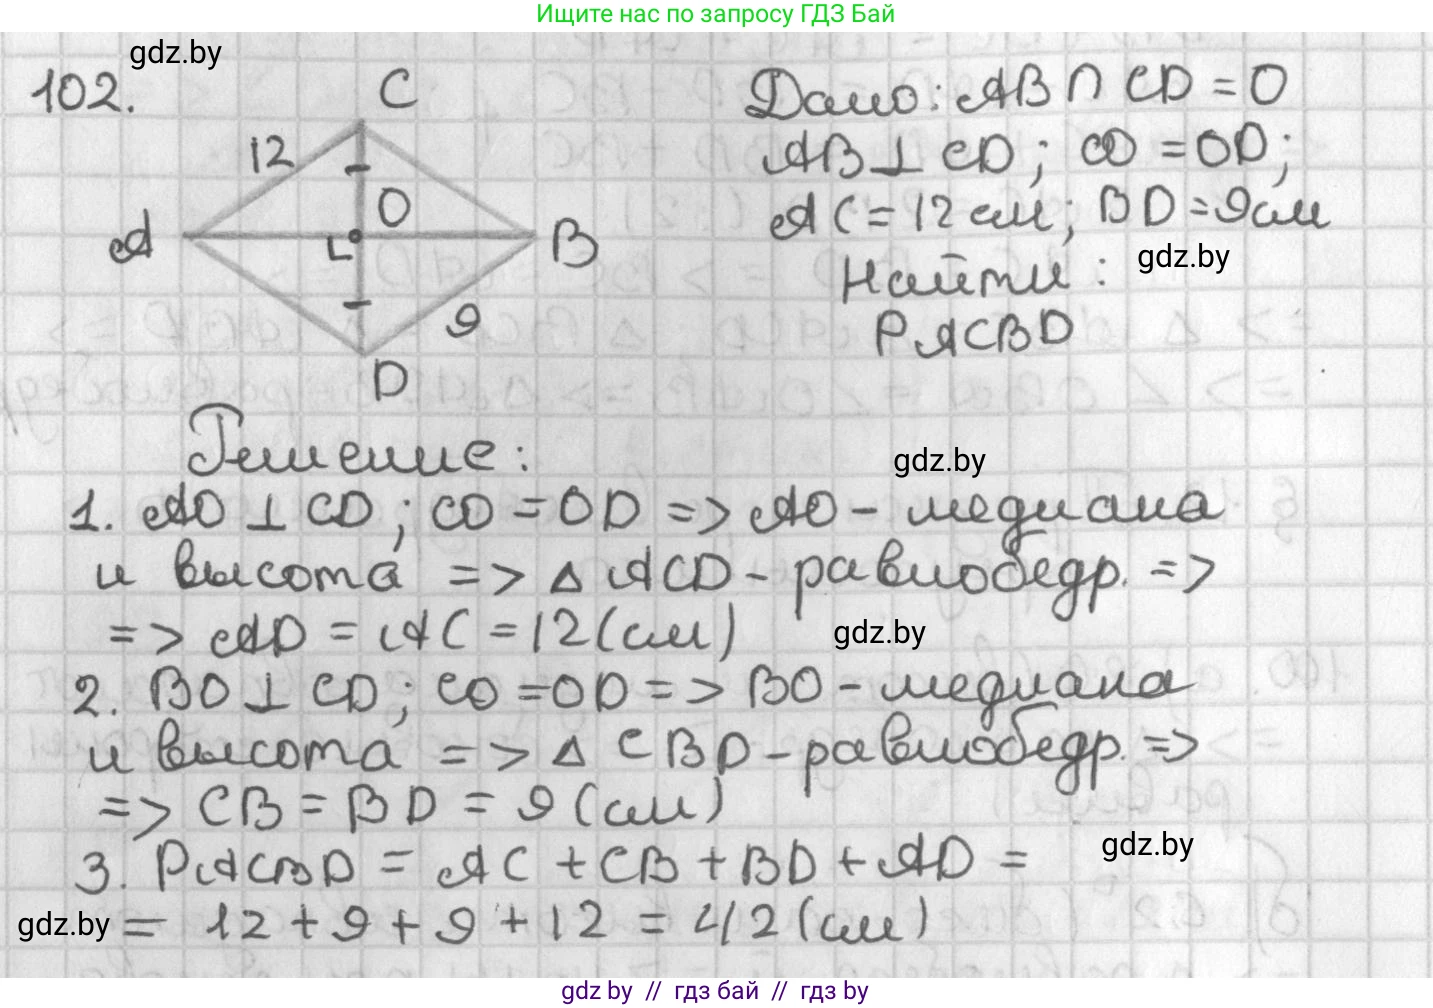 Ищите нас по запросу ГДЗ Бай
gdz.by
102.
C
12
O
A
B
9
D
Дано: AB ∩ CD = O
AB ⊥ CD; CO = OD;
AC = 12 см; BD = 9 см
gdz.by
Найти:
PACBD
Решение:
gdz.by
1. AO ⊥ CD; CO = OD => AO - медиана
и высота => △ ACD - равнобедр. =>
=> AD = AC = 12 (см)
gdz.by
2. BO ⊥ CD; CO = OD => BO - медиана
и высота => △ CBD - равнобедр. =>
=> CB = BD = 9 (см)
gdz.by
3. PACBD = AC + CB + BD + AD =
gdz.by
= 12 + 9 + 9 + 12 = 42 (см)
gdz by // гдз бай // гдз by